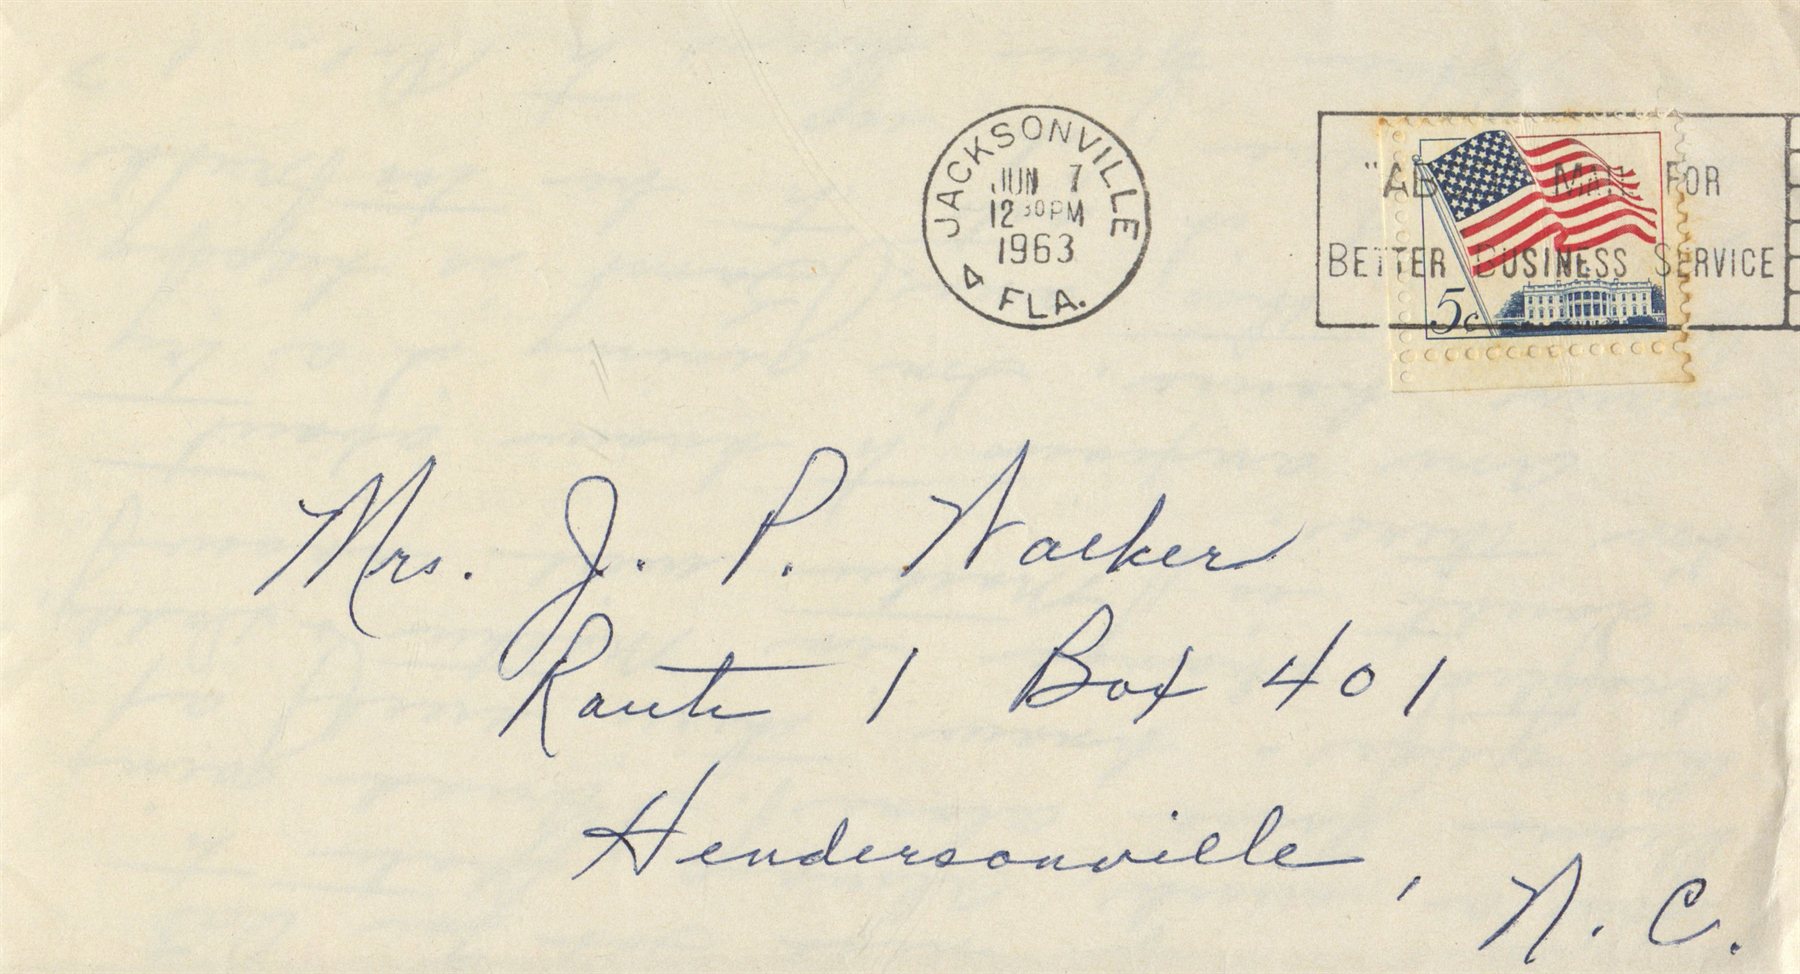 JACKSONVILLE
JUN 7
12 30 PM
1963
4 FLA.
MAIL FOR
BETTER BUSINESS SERVICE
5c
Mrs. J. P. Walker
Route 1 Box 401
Hendersonville, N. C.